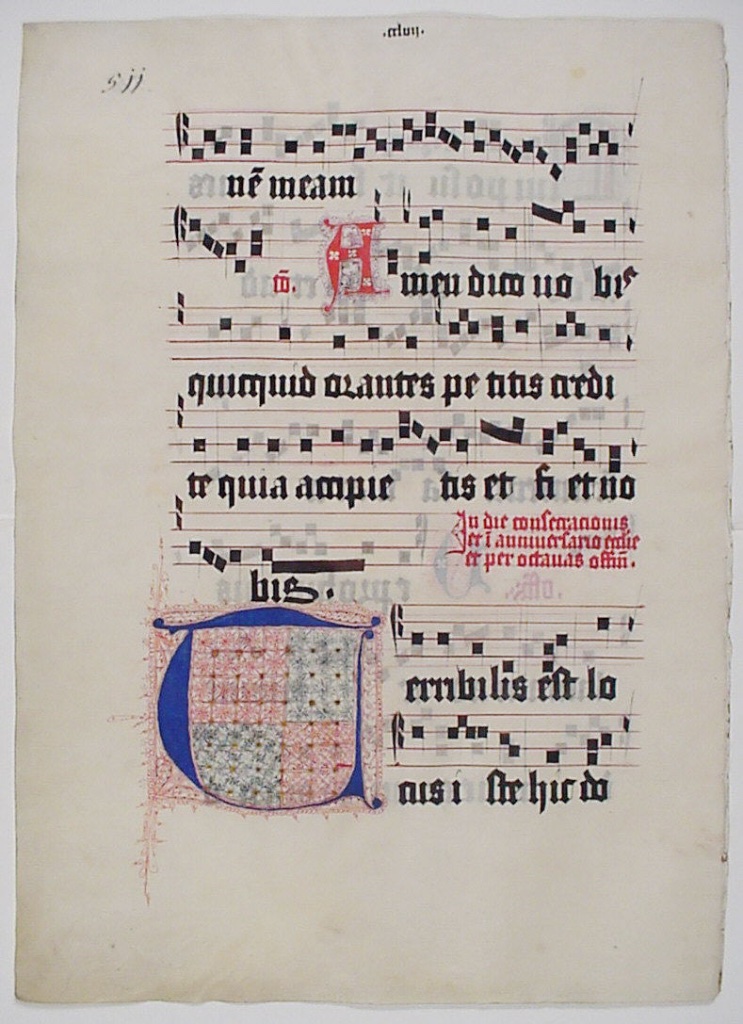 .cclvij.
5jj
nē meam
cō. Amen dico uo bis
quicquid orantes pe titis credi
te quia accipie tis et fi et uo
In die consecrationis
et ī anniuersario ecclie
et per octauas offm̄.
bis.
Terribilis est lo
cus i ste hic do